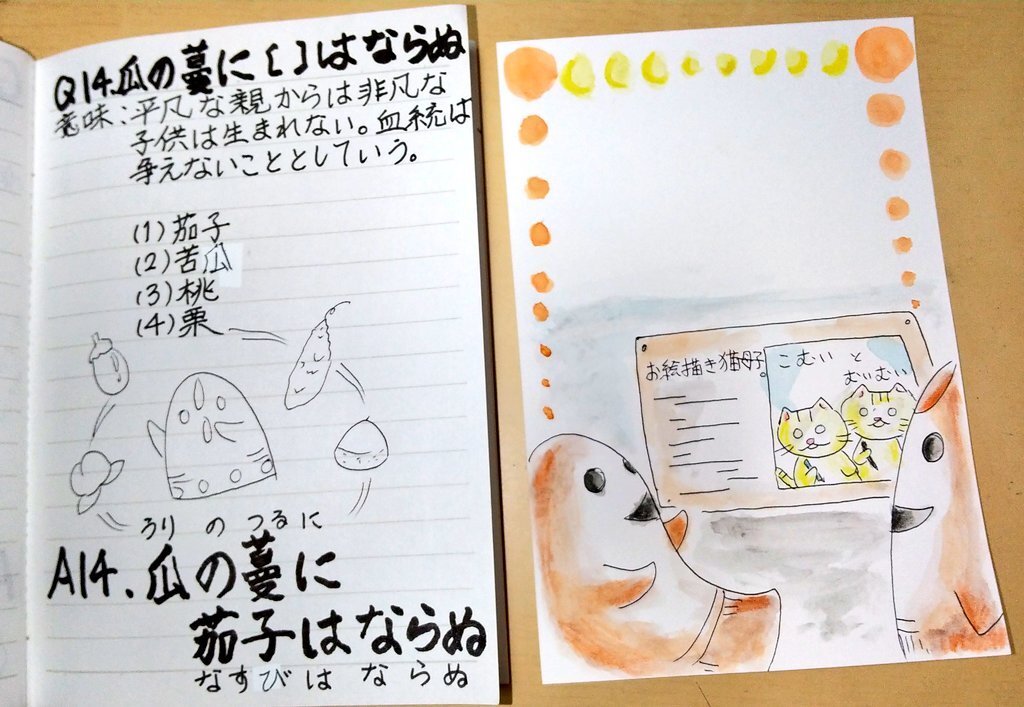 Q14.瓜の蔓に[ ]はならぬ
意味:平凡な親からは非凡な
子供は生まれない。血統は
争えないこととしていう。
(1)茄子
(2)苦瓜
(3)桃
(4)栗
うり の つるに
A14.瓜の蔓に
茄子はならぬ
なすび は ならぬ
お絵描き猫母子
こむい と
むいむい